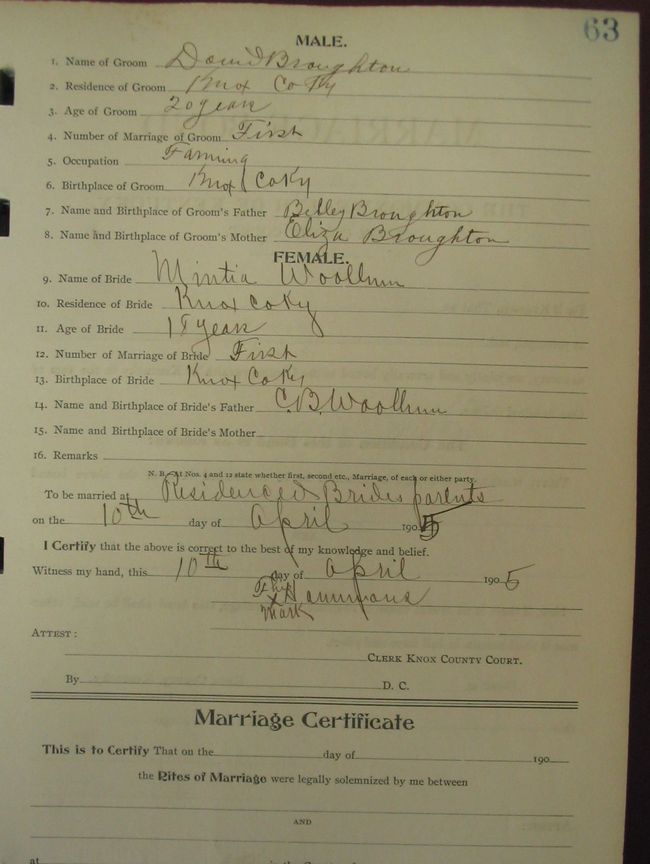 63
MALE.
1. Name of Groom David Broughton
2. Residence of Groom Knox Co Ky
3. Age of Groom 20 years
4. Number of Marriage of Groom First
5. Occupation Farming
6. Birthplace of Groom Knox Co Ky
7. Name and Birthplace of Groom's Father Billey Broughton
8. Name and Birthplace of Groom's Mother Eliza Broughton
FEMALE.
9. Name of Bride Mintia Woollum
10. Residence of Bride Knox Co Ky
11. Age of Bride 18 years
12. Number of Marriage of Bride First
13. Birthplace of Bride Knox Co Ky
14. Name and Birthplace of Bride's Father C.B. Woollum
15. Name and Birthplace of Bride's Mother
16. Remarks
N. B.—At Nos. 4 and 12 state whether first, second etc., Marriage, of each or either party.
To be married at Residence of Brides parents
on the 10th day of April 1905
I Certify that the above is correct to the best of my knowledge and belief.
Witness my hand, this 10th day of April 1905
Hammons
X
Mark
ATTEST:
CLERK KNOX COUNTY COURT.
By D. C.
Marriage Certificate
This is to Certify That on the day of 190
the Rites of Marriage were legally solemnized by me between
AND
at in the County of